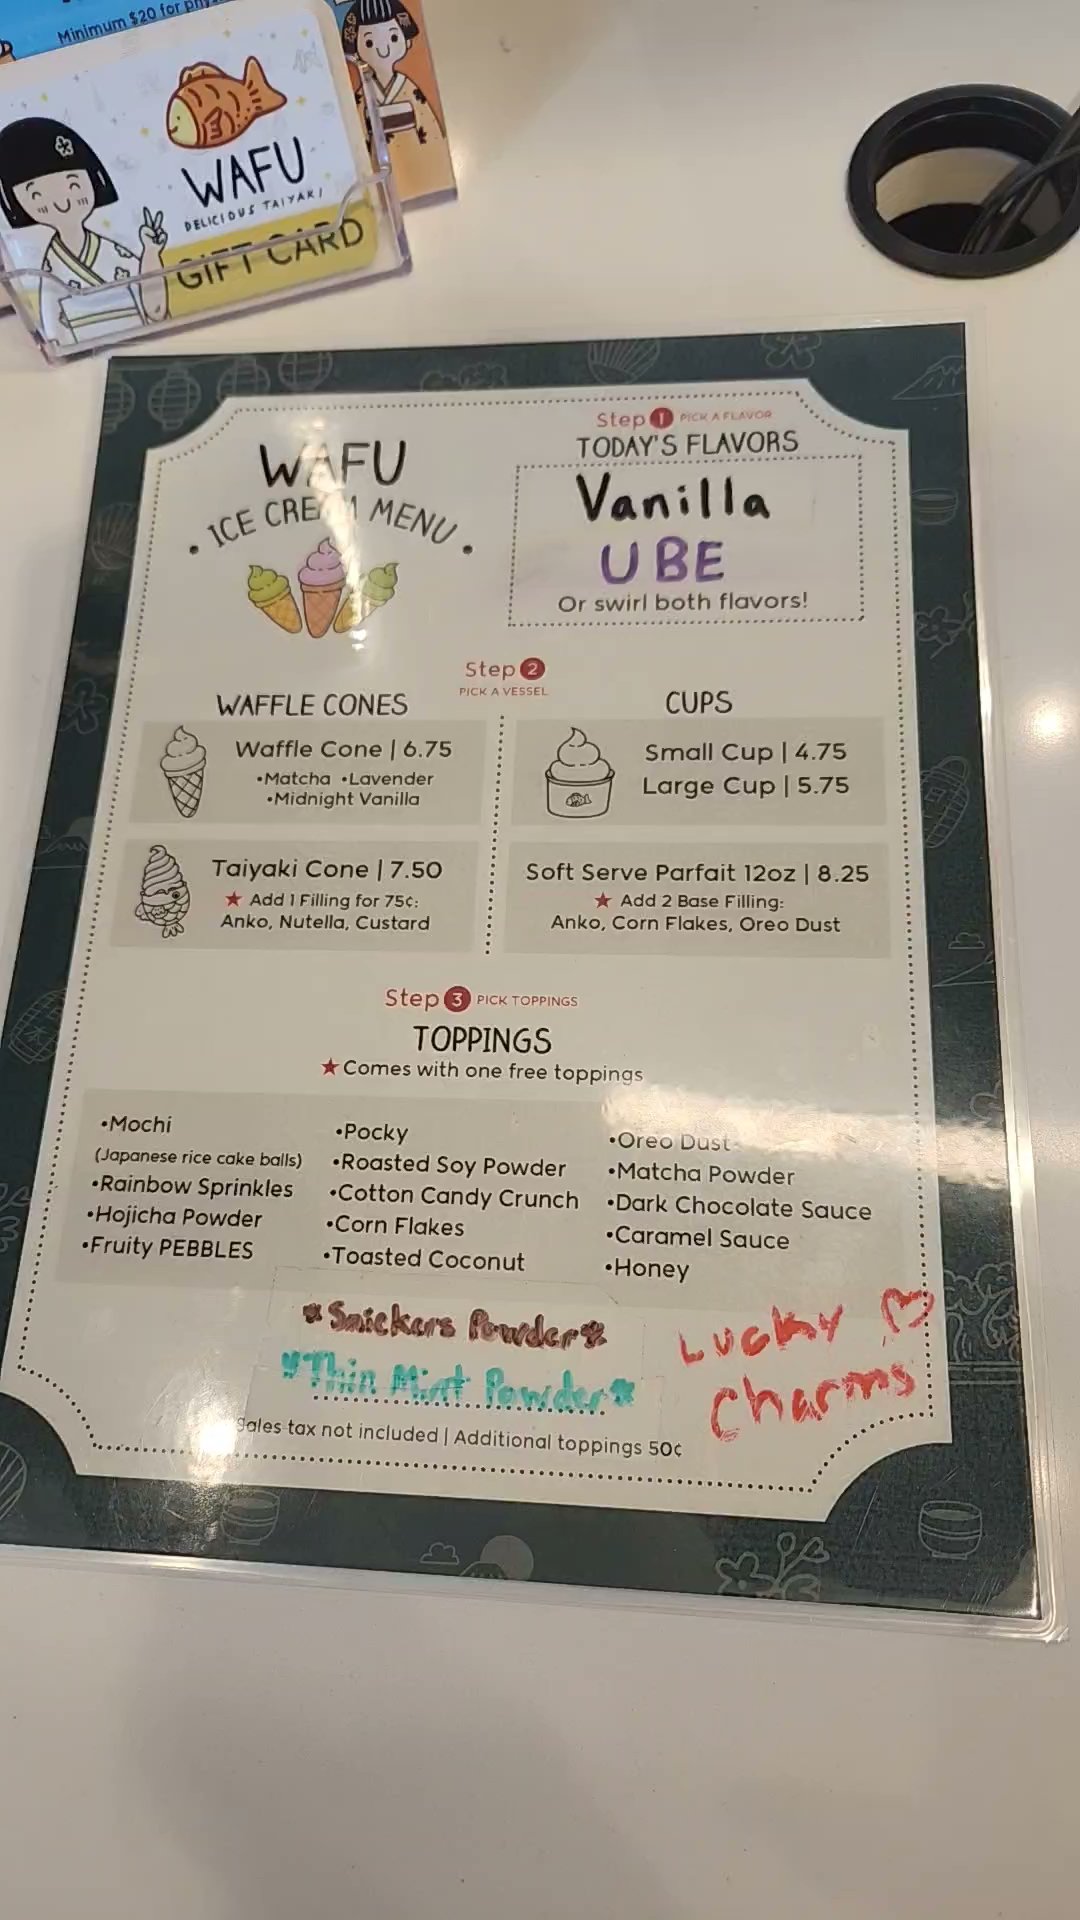 Minimum $20 for
WAFU
DELICIOUS TAIYAKI
GIFT CARD
WAFU
• ICE CREAM MENU •
Step 1 PICK A FLAVOR
TODAY'S FLAVORS
Vanilla
UBE
Or swirl both flavors!
Step 2
PICK A VESSEL
WAFFLE CONES
Waffle Cone | 6.75
•Matcha •Lavender
•Midnight Vanilla
Taiyaki Cone | 7.50
★ Add 1 Filling for 75¢:
Anko, Nutella, Custard
CUPS
Small Cup | 4.75
Large Cup | 5.75
Soft Serve Parfait 12oz | 8.25
★ Add 2 Base Filling:
Anko, Corn Flakes, Oreo Dust
Step 3 PICK TOPPINGS
TOPPINGS
★ Comes with one free toppings
•Mochi
(Japanese rice cake balls)
•Rainbow Sprinkles
•Hojicha Powder
•Fruity PEBBLES
•Pocky
•Roasted Soy Powder
•Cotton Candy Crunch
•Corn Flakes
•Toasted Coconut
•Oreo Dust
•Matcha Powder
•Dark Chocolate Sauce
•Caramel Sauce
•Honey
*Snickers Powder*
*Thin Mint Powder*
Lucky ♡
Charms
Sales tax not included | Additional toppings 50¢